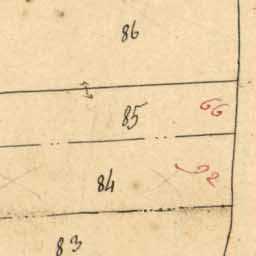 86
85
66
84
92
83